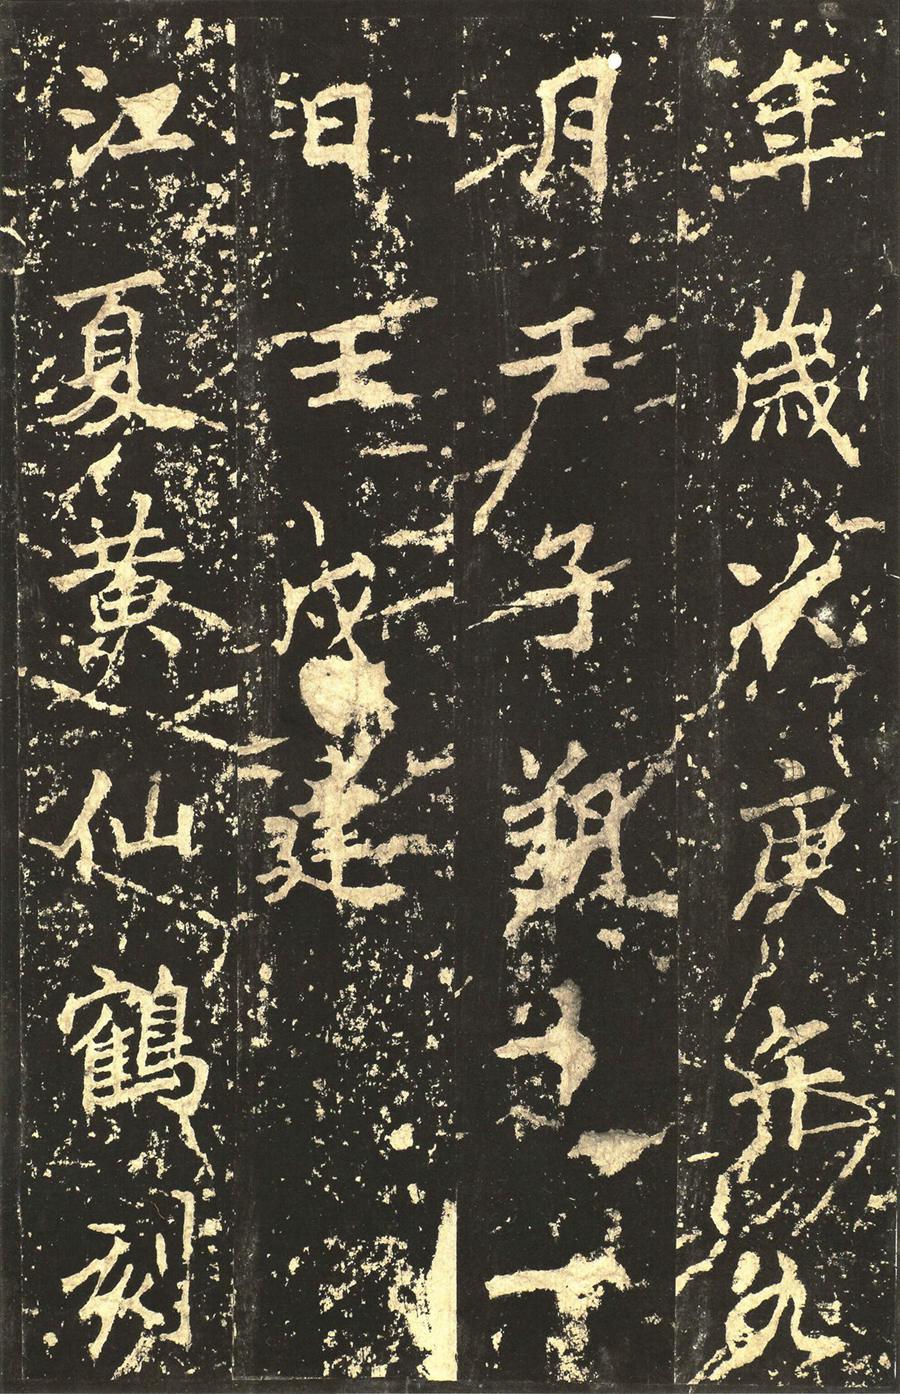 年歲次庚午九
月壬子朔十
日壬戌建
江夏黄仙鶴刻